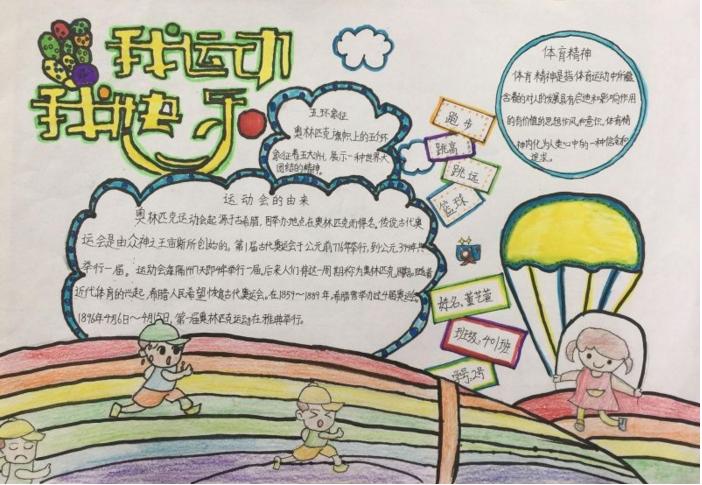 我运动
我快乐
五环象征
奥林匹克旗帜上的五环
象征着五大洲,展示一种世界大
团结的精神。
跑步
跳高
跳远
篮球
体育精神
体育精神是指体育运动中所蕴
含着的对人的发展具有启迪和影响作用
的有价值的思想作风和意识。体育精
神内化为人类心中的一种信念和
追求。
运动会的由来
奥林匹克运动会起源于古希腊,因举办地点在奥林匹克而得名。传说古代奥
运会是由众神之王宙斯所创始的。第1届古代奥运会于公元前776年举行,到公元394年共
举行一届。运动会每隔1417天即4年举行一届,后来人们将这一周期称为奥林匹克
近代体育的兴起,希腊人民希望恢复古代奥运会。在1859~1889年,希腊曾举办过4届奥运会。
1896年4月6日~4月15日,第一届奥林匹克运动在雅典举行。
姓名:董艺萱
班级:401班
学号:2号